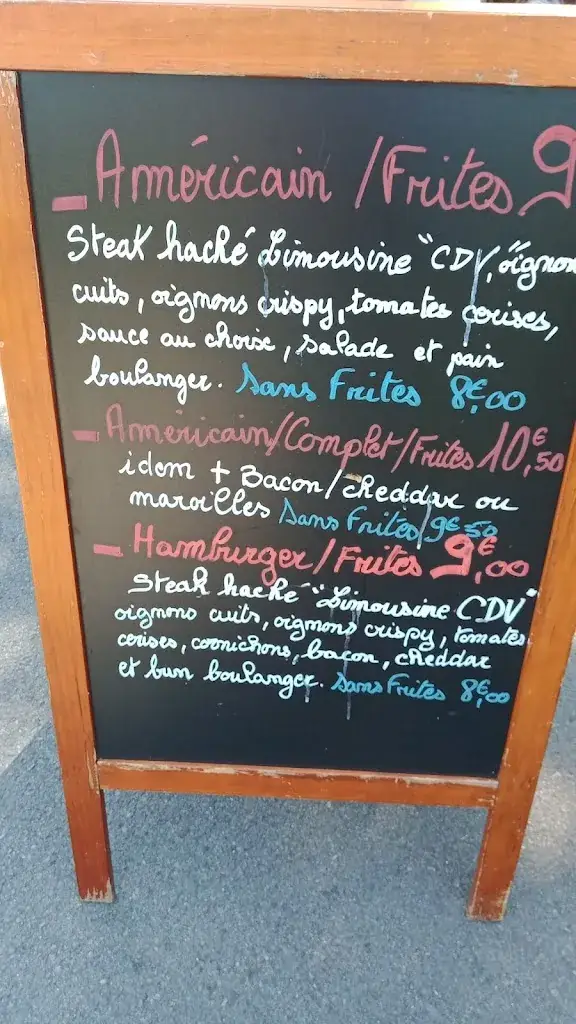 _ Américain /Frites 9
Steak haché Limousine "CDV", oignon
cuits, oignons crispy, tomates cerises,
sauce au choix, salade et pain
boulanger. Sans Frites 8€,00
_ Américain/Complet/Frites 10€,50
idem + Bacon/cheddar ou
maroilles Sans Frites/9€50
_ Hamburger/Frites 9€,00
Steak haché "Limousine CDV"
oignons cuits, oignons crispy, tomates
cerises, cornichons, bacon, cheddar
et bun boulanger. Sans Frites 8€,00